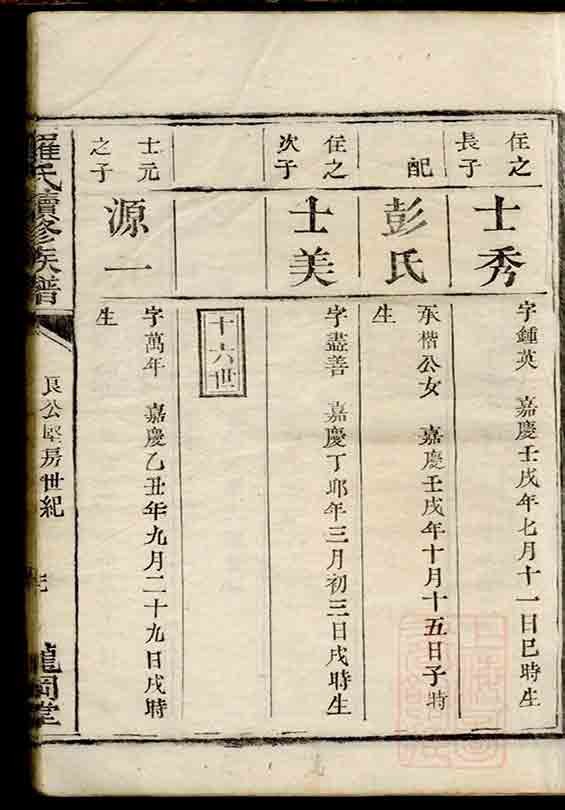 任之長子
士秀
字鍾英 嘉慶壬戌年七月十一日巳時生
配
彭氏
東楷公女 嘉慶壬戌年十月十五日子時生
任之次子
士美
字盡善 嘉慶丁卯年三月初三日戌時生
十六世
士元之子
源一
字萬年 嘉慶乙丑年九月二十九日戌時生
羅氏續修族譜
良公堅房世紀
龍岡堂